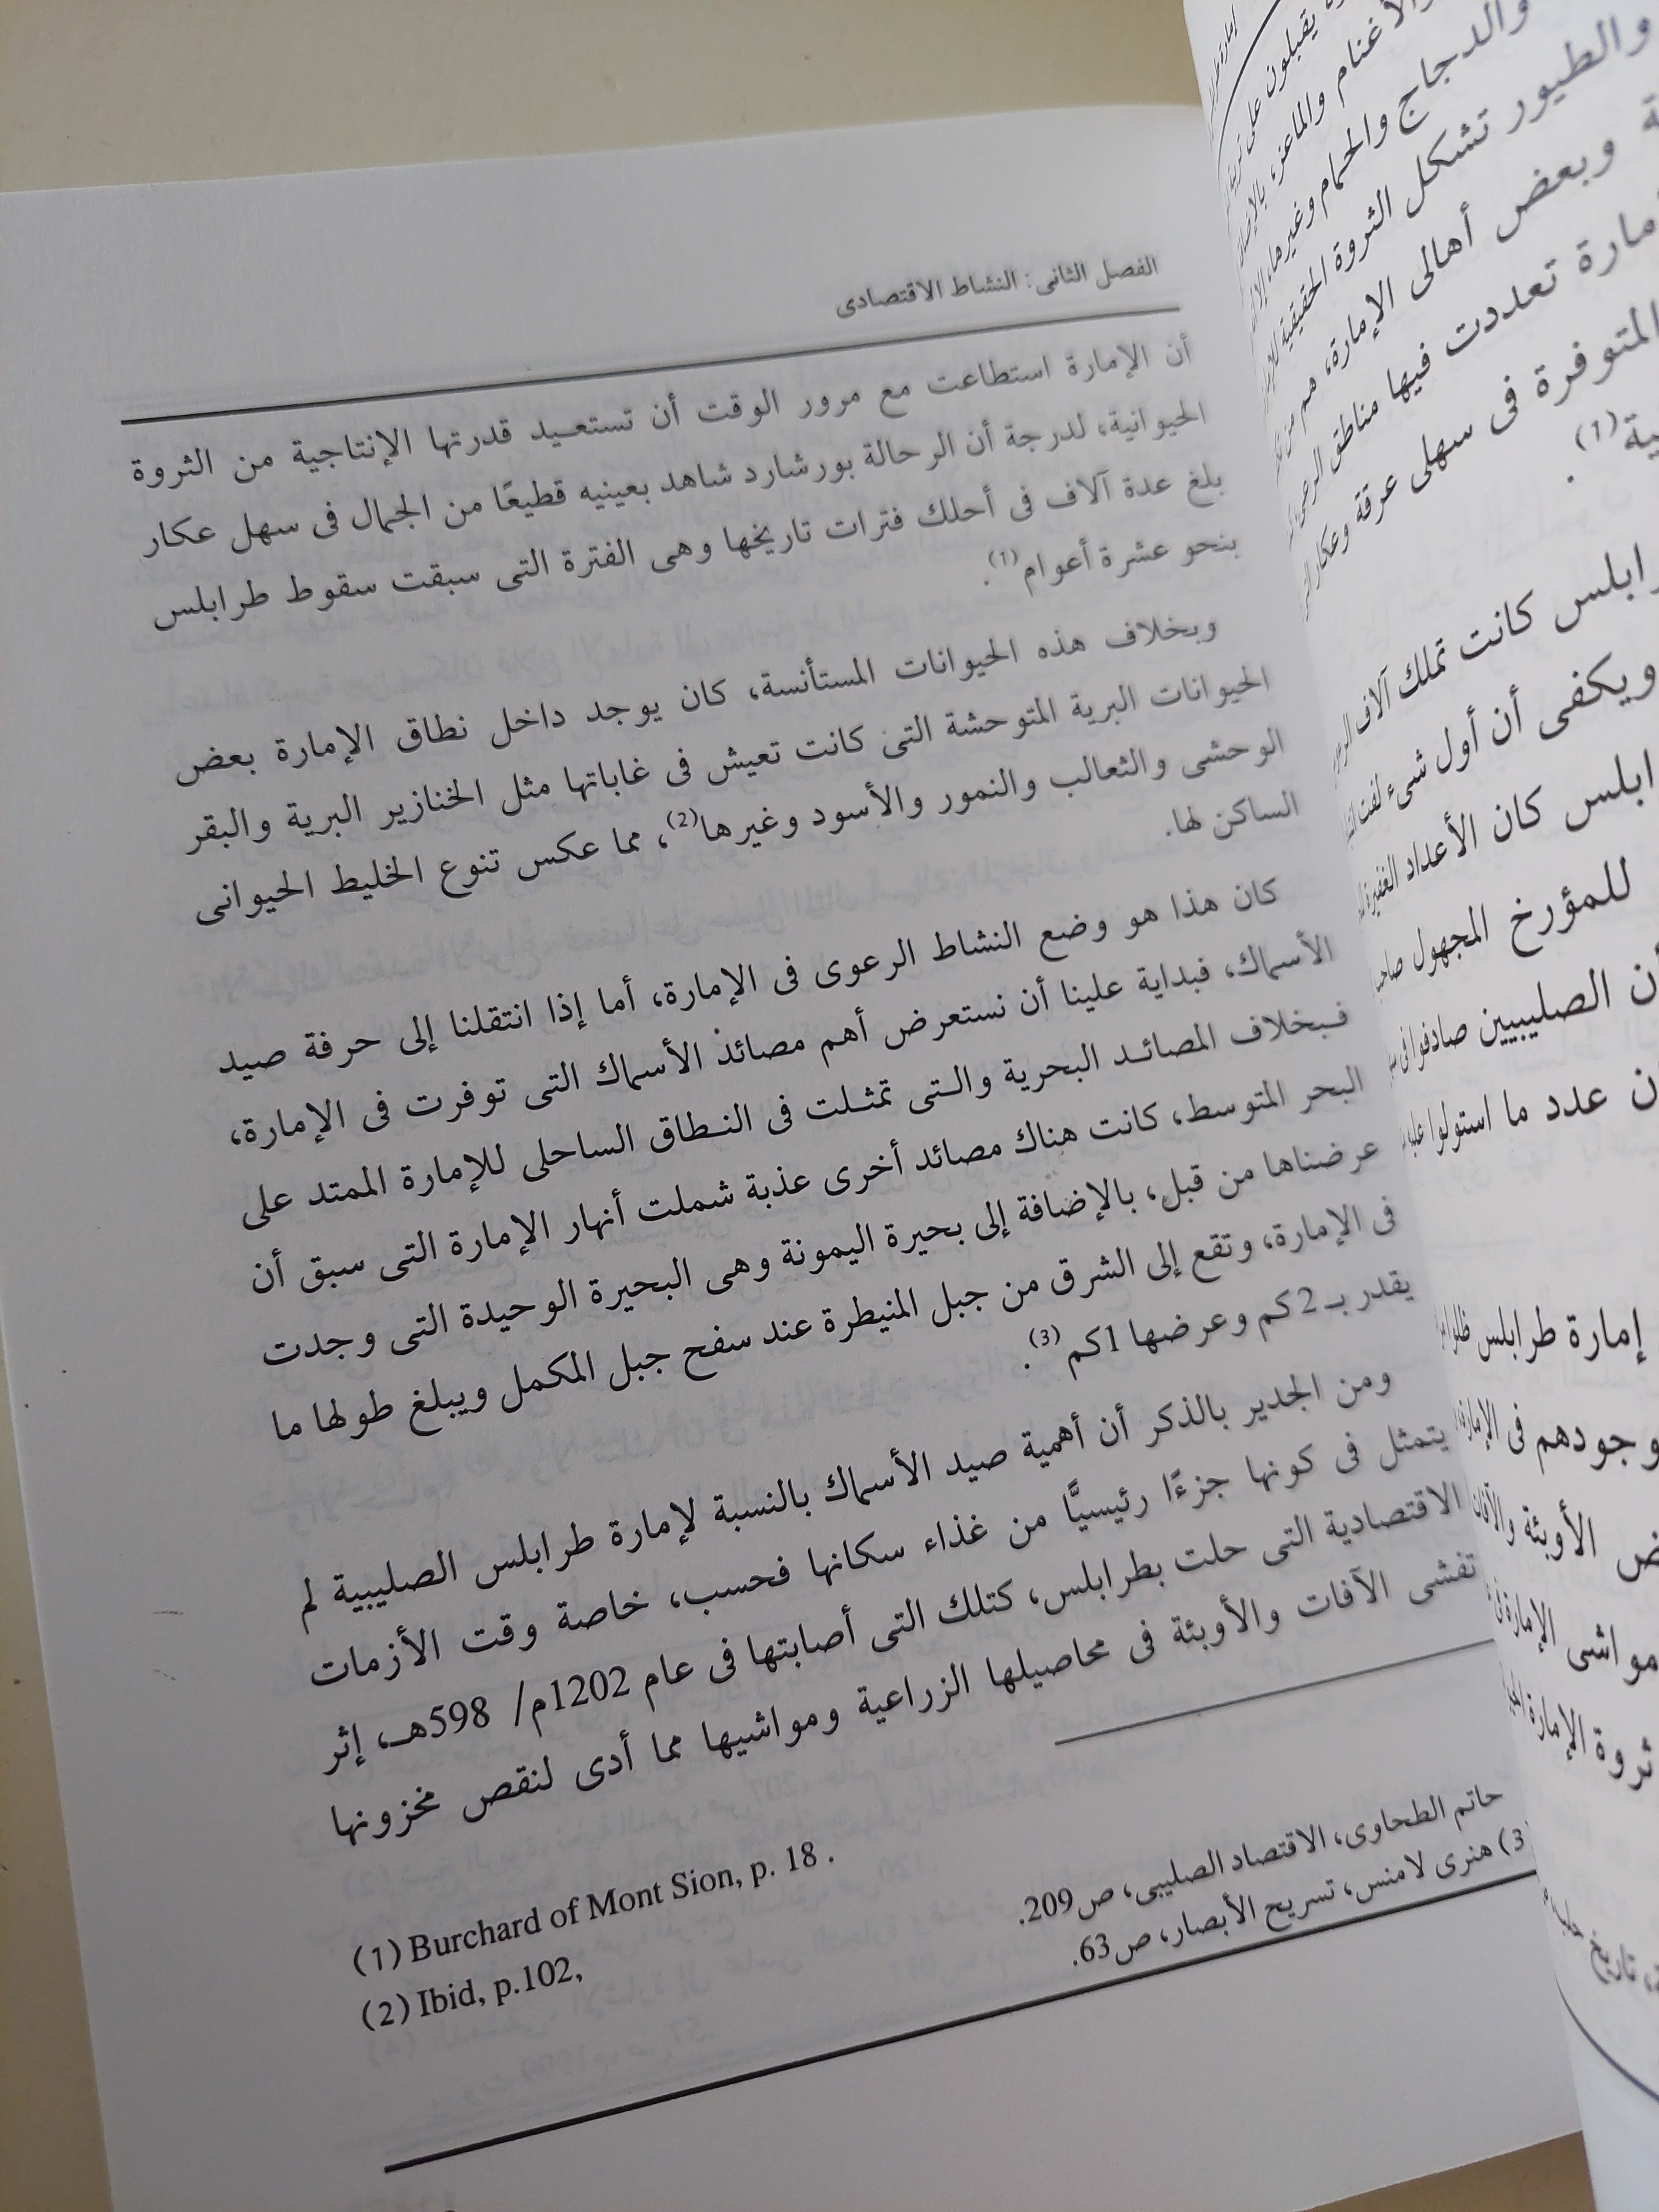 الفصل الثانى: النشاط الاقتصادى
أن الإمارة استطاعت مع مرور الوقت أن تستعيد قدرتها الإنتاجية من الثروة
الحيوانية، لدرجة أن الرحالة بورشارد شاهد بعينيه قطيعًا من الجمال فى سهل عكار
بلغ عدة آلاف فى أحلك فترات تاريخها وهى الفترة التى سبقت سقوط طرابلس
بنحو عشرة أعوام(1).
وبخلاف هذه الحيوانات المستأنسة، كان يوجد داخل نطاق الإمارة بعض
الحيوانات البرية المتوحشة التى كانت تعيش فى غاباتها مثل الخنازير البرية والبقر
الوحشى والثعالب والنمور والأسود وغيرها(2)، مما عكس تنوع الخليط الحيوانى
الساكن لها.
كان هذا هو وضع النشاط الرعوى فى الإمارة، أما إذا انتقلنا إلى حرفة صيد
الأسماك، فبداية علينا أن نستعرض أهم مصائذ الأسماك التى توفرت فى الإمارة،
فبخلاف المصائد البحرية والتى تمثلت فى النطاق الساحلى للإمارة الممتد على
البحر المتوسط، كانت هناك مصائد أخرى عذبة شملت أنهار الإمارة التى سبق أن
عرضناها من قبل، بالإضافة إلى بحيرة اليمونة وهى البحيرة الوحيدة التى وجدت
فى الإمارة، وتقع إلى الشرق من جبل المنيطرة عند سفح جبل المكمل ويبلغ طولها ما
يقدر بـ 2 كم وعرضها 1 كم (3).
ومن الجدير بالذكر أن أهمية صيد الأسماك بالنسبة لإمارة طرابلس الصليبية لم
يتمثل فى كونها جزءًا رئيسيًّا من غذاء سكانها فحسب، خاصة وقت الأزمات
الاقتصادية التى حلت بطرابلس، كتلك التى أصابتها فى عام 1202م/ 598هـ، إثر
تفشى الآفات والأوبئة فى محاصيلها الزراعية ومواشيها مما أدى لنقص مخزونها
(1) Burchard of Mont Sion, p. 18 .
(2) Ibid, p.102,
حاتم الطحاوى، الاقتصاد الصليبى، ص209.
3) هنرى لامنس، تسريح الأبصار، ص63.
يقبلون على
والأغنام والماعز،
والدجاج والحمام وغيرها،
والطيور تشكل الثروة الحقيقية
وبعض أهالى الإمارة، هم
تعددت فيها مناطق الرعى
المتوفرة فى سهلى عرقة وعكار
(1).
كانت تملك آلاف
ويكفى أن أول شىء لفت
كان الأعداد الغفيرة
للمؤرخ المجهول
الصليبيين صادفوا فى
عدد ما استولوا عليه
إمارة طرابلس ظلوا
وجودهم فى الإمارة
الأوبئة والآفات
مواشى الإمارة فى
ثروة الإمارة
تاريخ